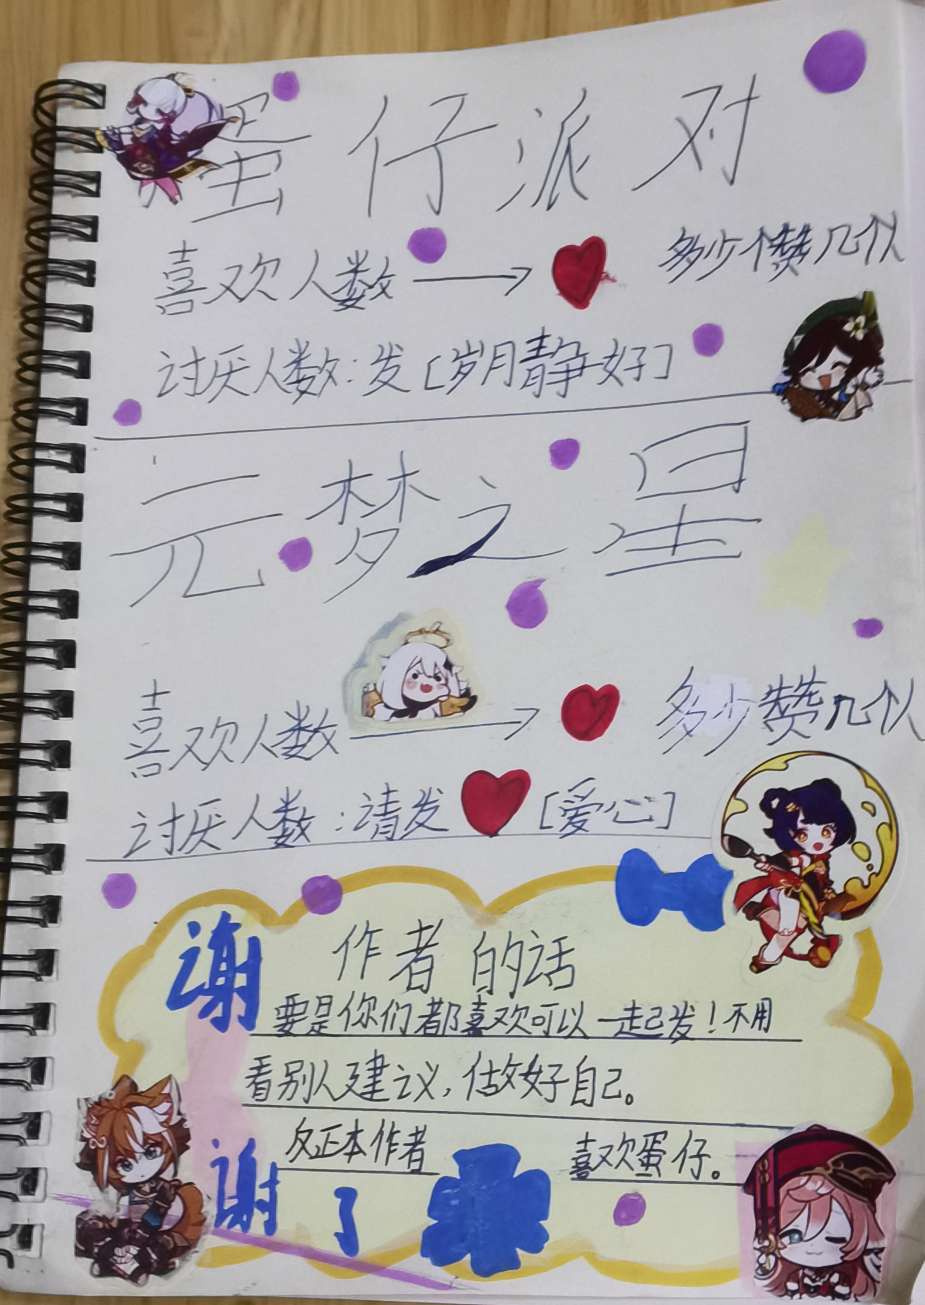 蛋仔派对
喜欢人数 → 多少个赞几个人
讨厌人数:发[岁月静好]
元梦之星
喜欢人数 → 多少赞几个人
讨厌人数:请发 [爱心]
谢 作者的话
要是你们都喜欢可以一起发!不用
看别人建议,做好自己。
反正本作者 喜欢蛋仔。
谢了